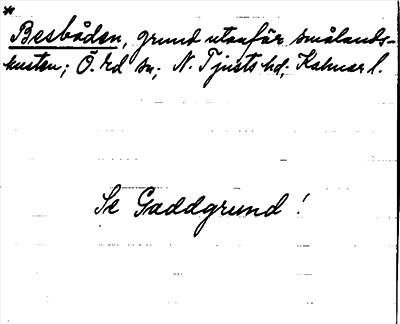 *
Besbåden, grund utanför smålands-
kusten; Ö. Ed sn; N. Tjusts hd, Kalmar l.
Se Gaddgrund!